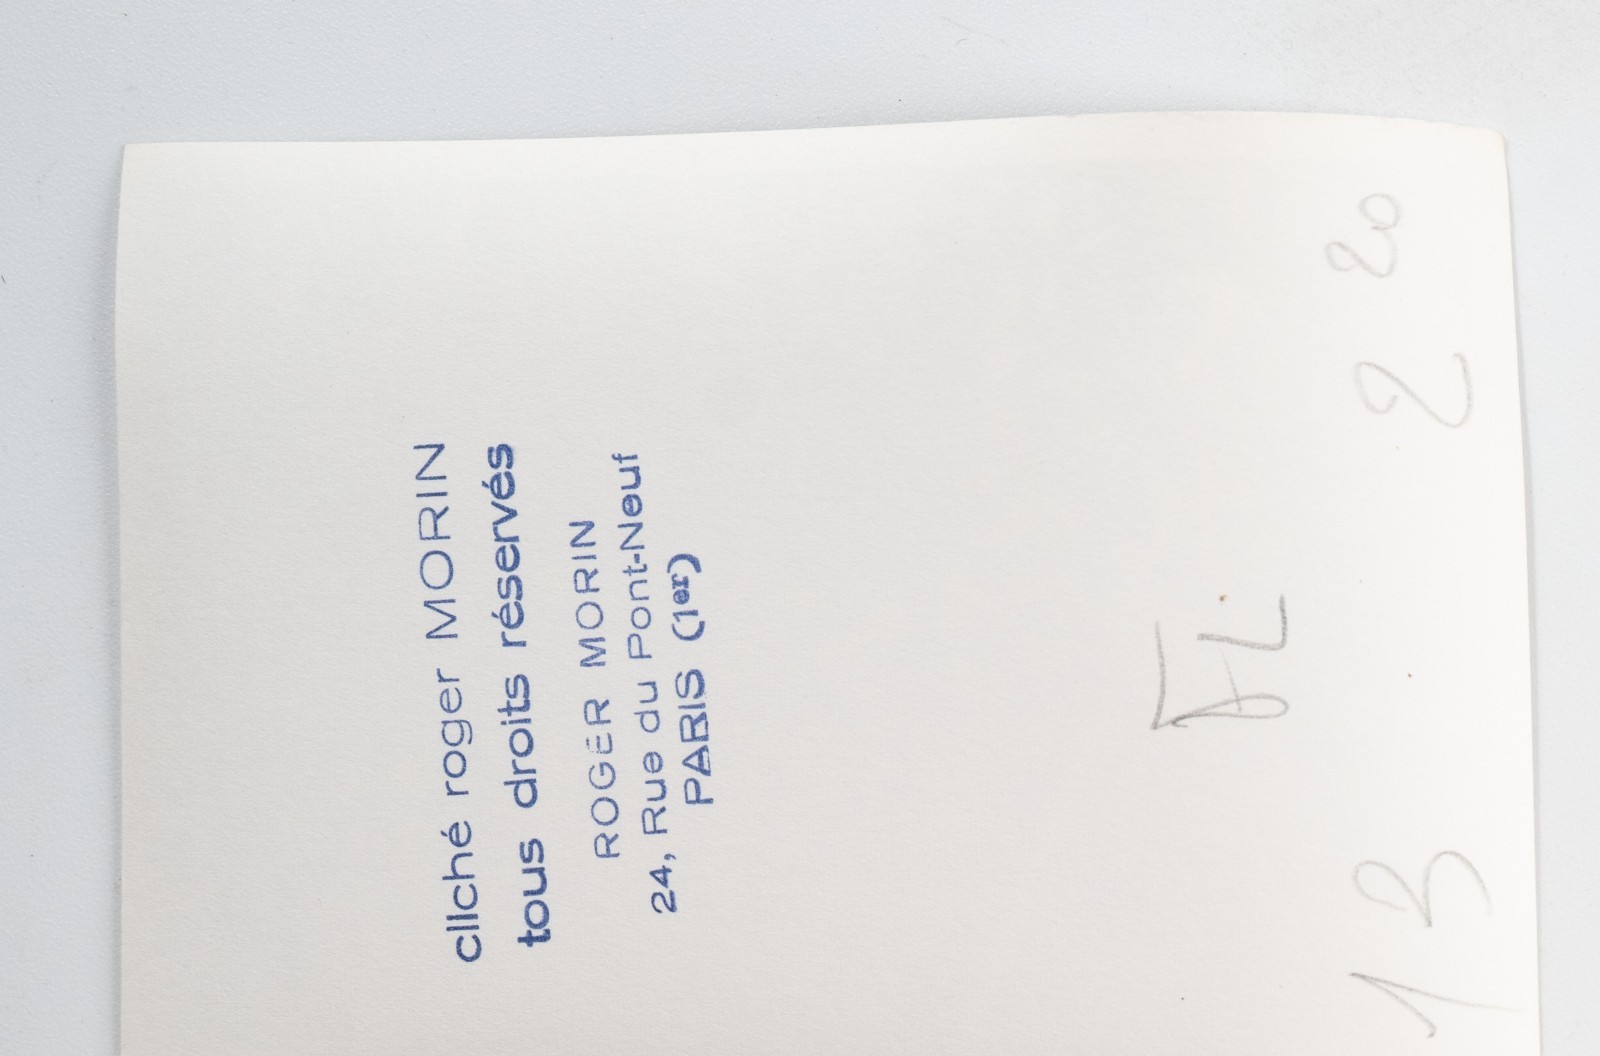 cliché roger MORIN
tous droits réservés
ROGER MORIN
24, Rue du Pont-Neuf
PARIS (1er)
13 2 20